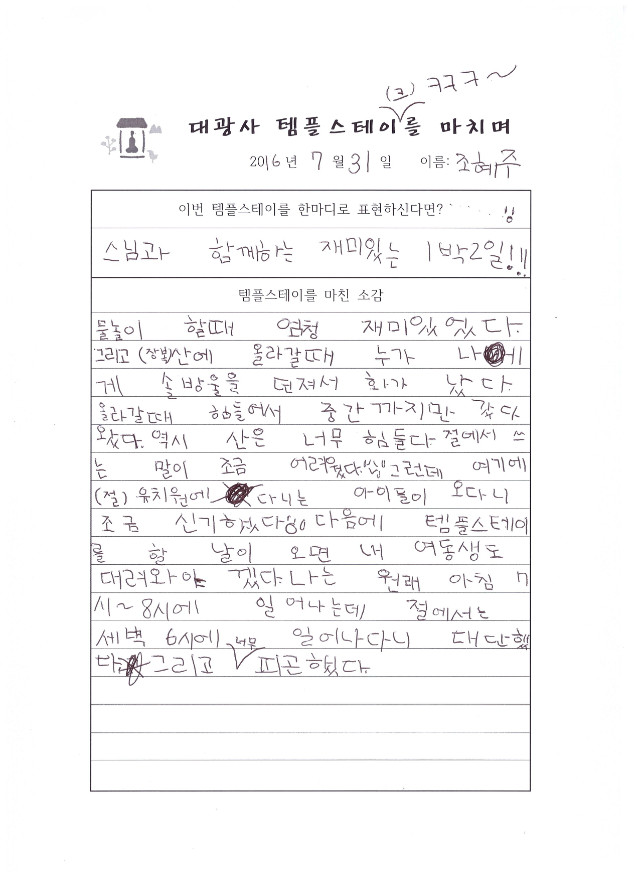 (크) ㅋㅋㅋ~
대광사 템플스테이를 마치며
2016년 7월 31일 이름: 조혜주
이번 템플스테이를 한마디로 표현하신다면?
스님과 함께하는 재미있는 1박2일!!
템플스테이를 마친 소감
물놀이 할때 엄청 재미있었다.
그리고 산에 올라갈때 누가 나에
게 솔방울을 던져서 화가 났다.
올라갈때 힘들어서 중간까지만 갔다
왔다. 역시 산은 너무 힘들다 절에서 쓰
는 말이 조금 어려웠다. 그런데 여기에
(절) 유치원에 다니는 아이들이 오다니
조금 신기했다 다음에 템플스테이
를 할 날이 오면 내 여동생도
대려와야 겠다. 나는 원래 아침 7
시~8시에 일어나는데 절에서는
세벽 6시에 너무 일어나다니 대단했
다 그리고 피곤했다.